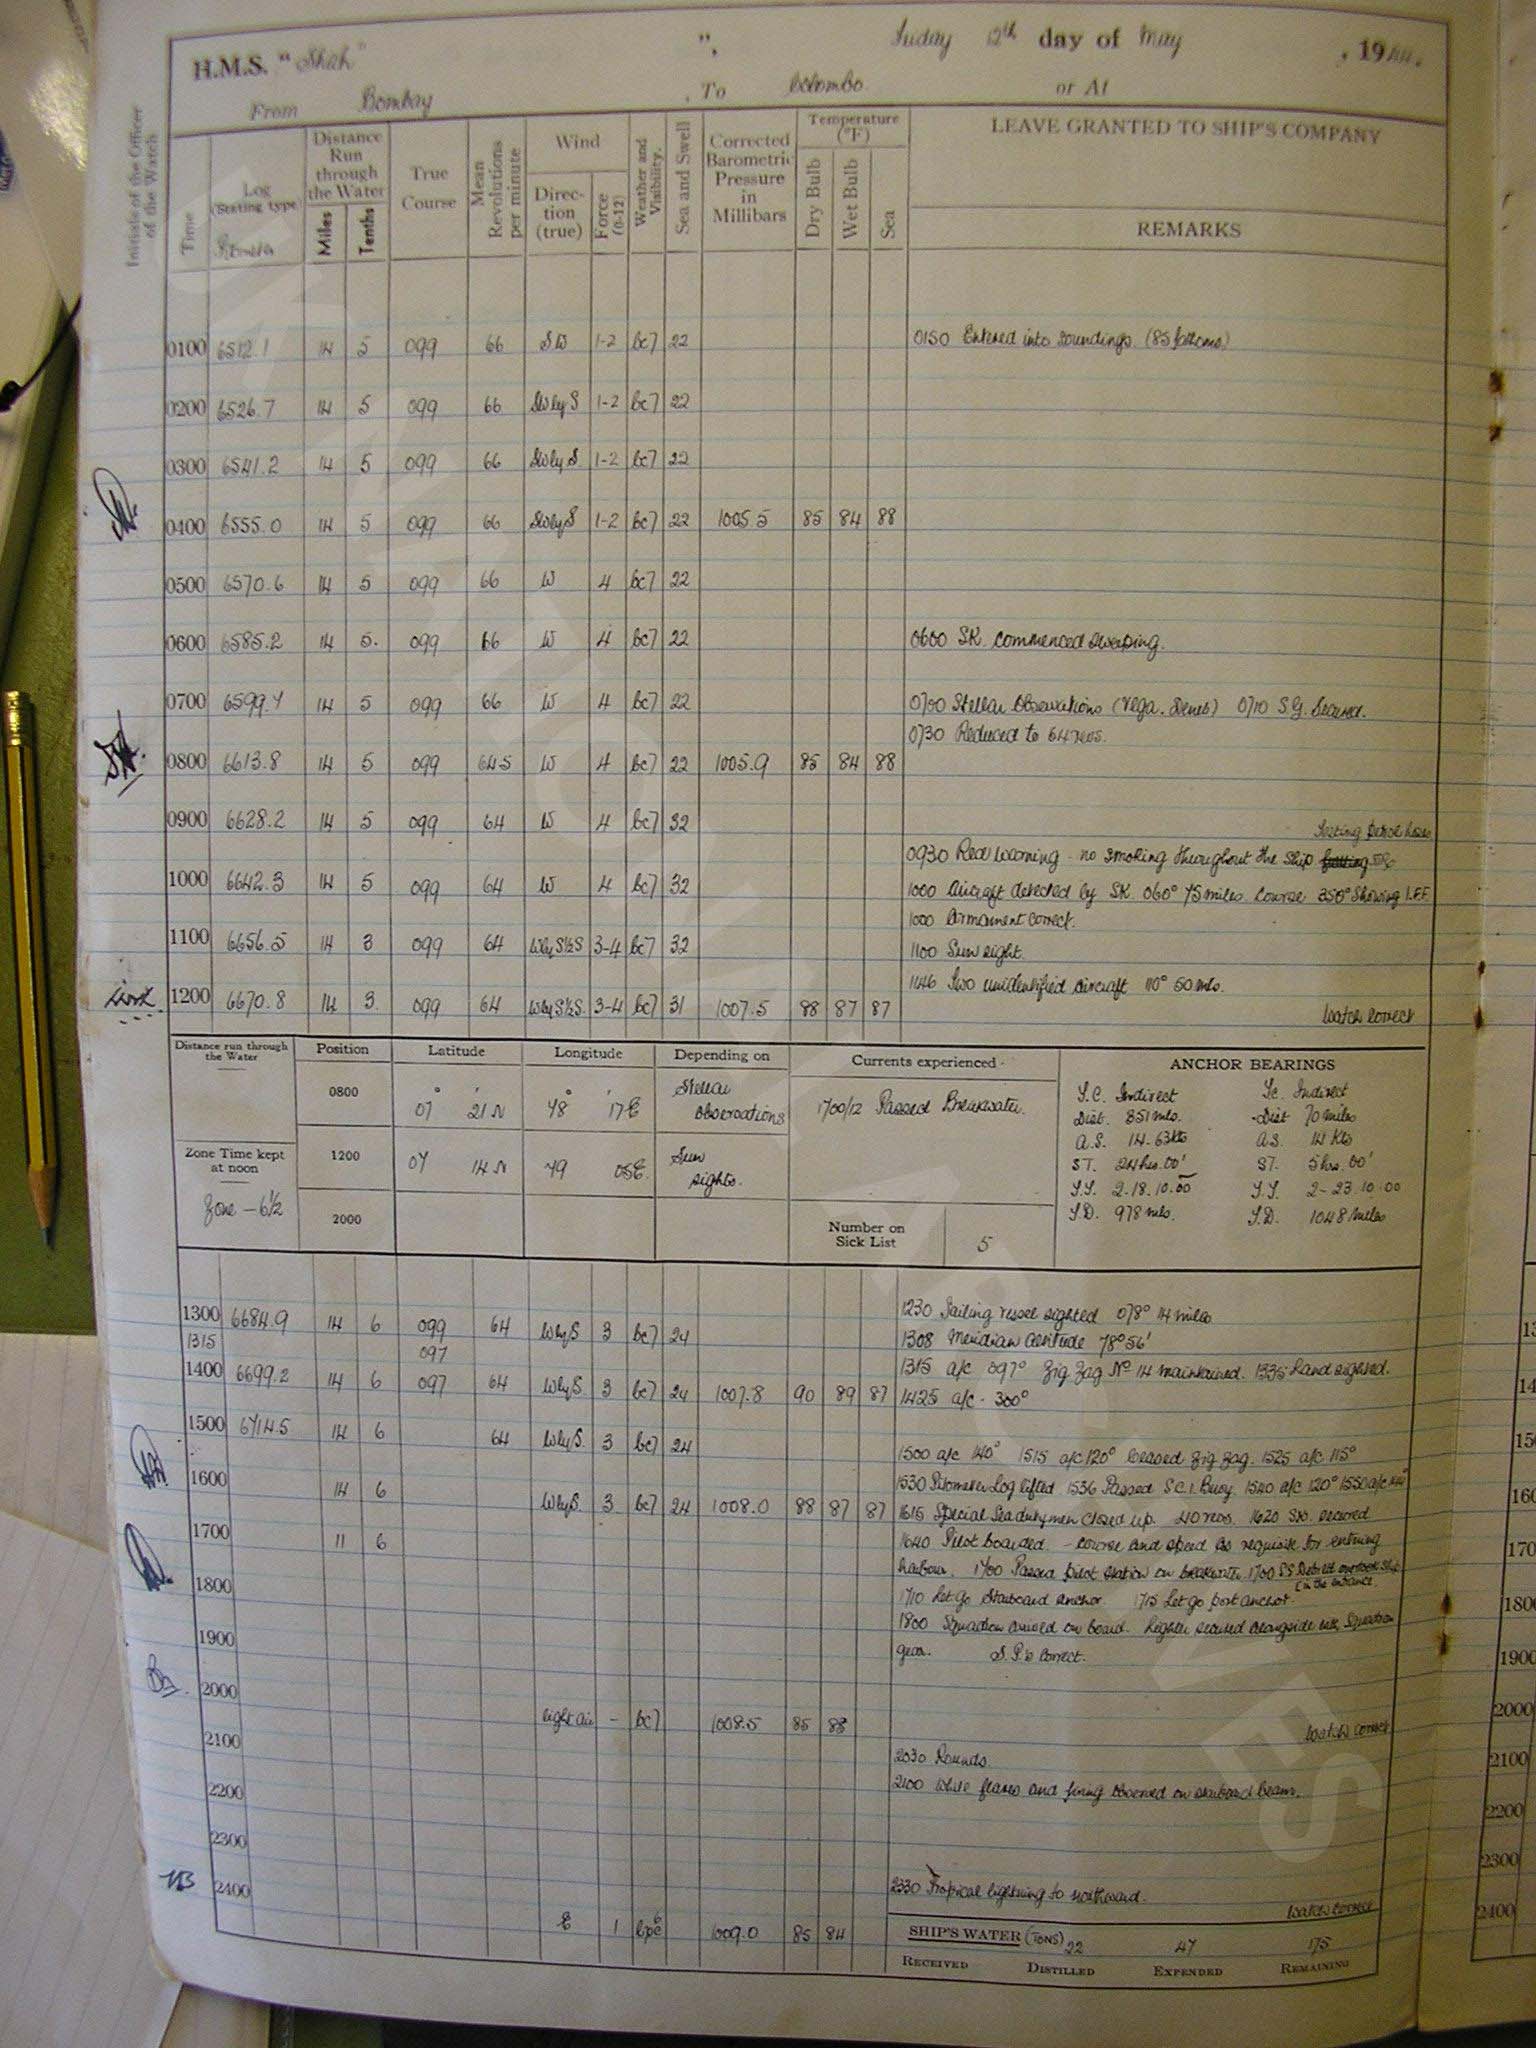 H.M.S. "Shah", Friday 12th day of May, 1944.
From Bombay, To Colombo or At
Initials of the Officer of the Watch
Time
Log (Stating type)
Pitometer
Distance Run through the Water
Miles
Tenths
True Course
Mean Revolutions per minute
Wind
Direction (true)
Force (0-12)
Weather and Visibility.
Sea and Swell
Corrected Barometric Pressure in Millibars
Temperature (°F)
Dry Bulb
Wet Bulb
Sea
LEAVE GRANTED TO SHIP'S COMPANY
REMARKS
0100 6512.1 14 5 099 66 SW 1-2 bc7 22 0150 Entered into soundings. (85 fathoms)
0200 6526.7 14 5 099 66 SWbyS 1-2 bc7 22
0300 6541.2 14 5 099 66 SWbyS 1-2 bc7 22
0400 6555.0 14 5 099 66 SWbyS 1-2 bc7 22 1005.5 85 84 88
0500 6570.6 14 5 099 66 W 4 bc7 22
0600 6585.2 14 5. 099 66 W 4 bc7 22 0600 SK. commenced sweeping.
0700 6599.7 14 5 099 66 W 4 bc7 22 0700 Stellar Observations (Vega. Deneb) 0710 S.G. Secured.
0730 Reduced to 64 revs.
0800 6613.8 14 5 099 64.5 W 4 bc7 22 1005.9 85 84 88
0900 6628.2 14 5 099 64 W 4 bc7 32
Testing petrol hoses
0930 Red warning - no smoking throughout the ship
1000 6642.3 14 5 099 64 W 4 bc7 32 1000 Aircraft detected by SK. 060° 75 miles course 350° Showing I.F.F.
1000 Armament correct.
1100 6656.5 14 3 099 64 WbyS½S 3-4 bc7 32 1100 Sun sight.
1146 Two unidentified aircraft 110° 50 mls.
1200 6670.8 14 3. 099 64 WbyS½S. 3-4 bc7 31 1007.5 88 87 87 Watch correct
Distance run through the Water
Position
Latitude
Longitude
Depending on
Currents experienced
ANCHOR BEARINGS
0800 07° 21' N 78° 17 E Stellar Observations
1700/12 Passed Breakwater.
T.C. Indirect Tc. Indirect
Dist. 351 mls. Dist 70 miles
A.S. 14.63kts A.S. 14 Kts
ST. 24hrs.00' ST. 5hrs.00'
T.T. 2.18.10.00 T.T. 2-23.10.00
T.D. 978 mls. T.D. 1048 miles
Zone Time kept at noon
Zone - 6½
1200 07 14 N 79 05E. Sun sights.
2000
Number on Sick List 5
1230 Sailing vessel sighted 078° 14 miles
1300 6684.9 14 6 099 64 WbyS 3 bc7 24
1308 Meridian altitude 78° 56'
1315 097
1315 a/c 097° Zig Zag No 14 maintained. 1335 Land sighted.
1400 6699.2 14 6 097 64 WbyS. 3 bc7 24 1007.8 90 89 87 1425 a/c - 300°
1500 6714.5 14 6 64 WbyS. 3 bc7 24
1500 a/c 140° 1515 a/c 120° Ceased Zig Zag. 1525 a/c 115°
1530 Pitometer Log lifted 1536 Passed S.C.1. Buoy. 1540 a/c 120° 1550 a/c
1600 14 6 WbyS. 3 bc7 24 1008.0 88 87 87 1615 Special Sea dutymen closed up. 40 revs. 1620 SK. secured
1640 Pilot boarded. - course and speed as requisite for entering
1700 11 6
harbour. 1700 Passed pilot station on breakwater. 1700 SS overtook ship
(in the entrance.
1710 Let go Starboard anchor. 1715 Let go port anchor.
1800
1800 Squadron arrived on board. Lighter secured alongside with Squadron
gear. S.P.'s correct.
1900
2000 light air - bc7 1008.5 85 83 Watch correct
2030 Rounds.
2100
2100 White flares and firing observed on starboard beam.
2200
2300
2330 Tropical lightning to northward.
Watch correct
2400 E 1 1009.0 85 84
SHIP'S WATER (TONS) 22 47 175
RECEIVED DISTILLED EXPENDED REMAINING
1800
1900
2000
2100
2200
2300
2400